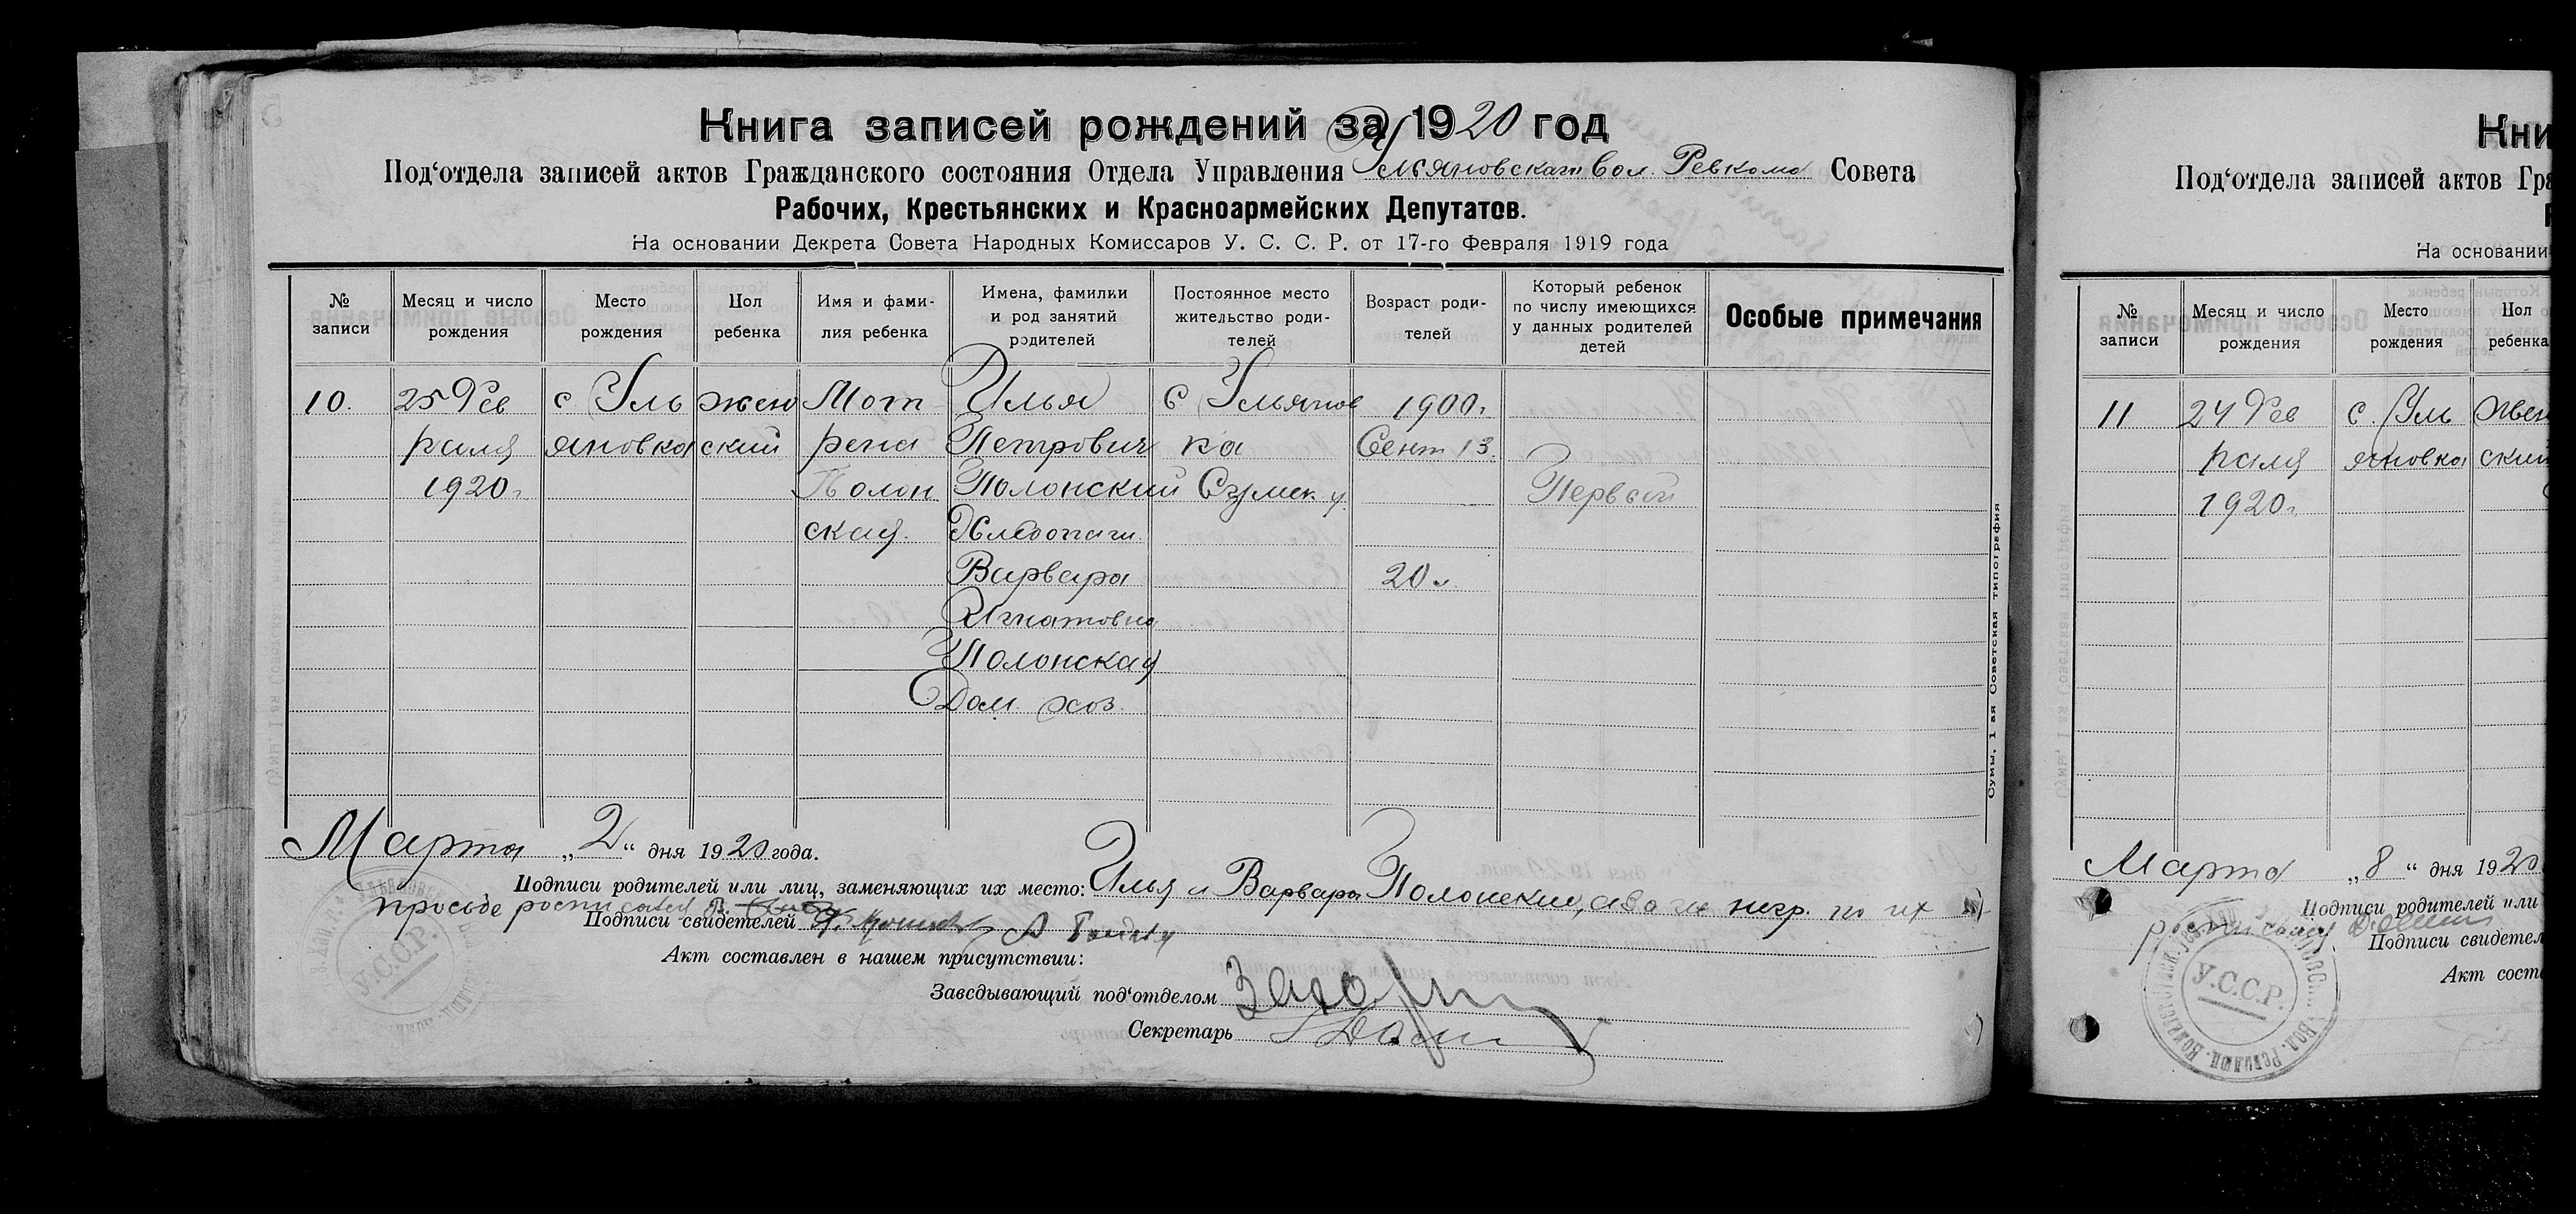 Книга записей рождений за 1920 год
Под‘отдела записей актов Гражданского состояния Отдела Управления Ульяновскаго Вол. Ревкома Совета
Рабочих, Крестьянских и Красноармейских Депутатов.
На основании Декрета Совета Народных Комиссаров У. С. С. Р. от 17-го Февраля 1919 года
№ записи
Месяц и число рождения
Место рождения
Пол ребенка
Имя и фами-
лия ребенка
Имена, фамилки
и род занятий
родителей
Постоянное место
жительство роди-
телей
Возраст роди-
телей
Который ребенок
по числу имеющихся
у данных родителей
детей
Особые примечания
10. 25 Фев с. Уль жен Мот Илья с Ульянов 1900г
раля яновка ский рена Петрович ка Сент 13.
1920г Полон Полонский Сумск у. Первый
ская. Хлебопаш.
Варвара 20л.
Игнатовна
Полонская
Дом. хоз.
Марта „2“ дня 1920 года.
Подписи родителей или лиц, заменяющих их место: Илья и Варвара Полонские, а за их негр. по их
просьбе росписался
Подписи свидетелей
Акт составлен в нашем присутствии:
Заведывающий под‘отделом
Секретарь
У.С.С.Р.
Сумы, 1 ая Советская типография
Кни
Под‘отдела записей актов Гра
На основании
№ записи
Месяц и число рождения
Место рождения
Пол ребенка
11 24 Фев с. Уль жен
раля яновка ский
1920г.
Марта „8“ дня 1920
Подписи родителей или
росписался
Подписи свидетел
Акт соста
У.С.С.Р.